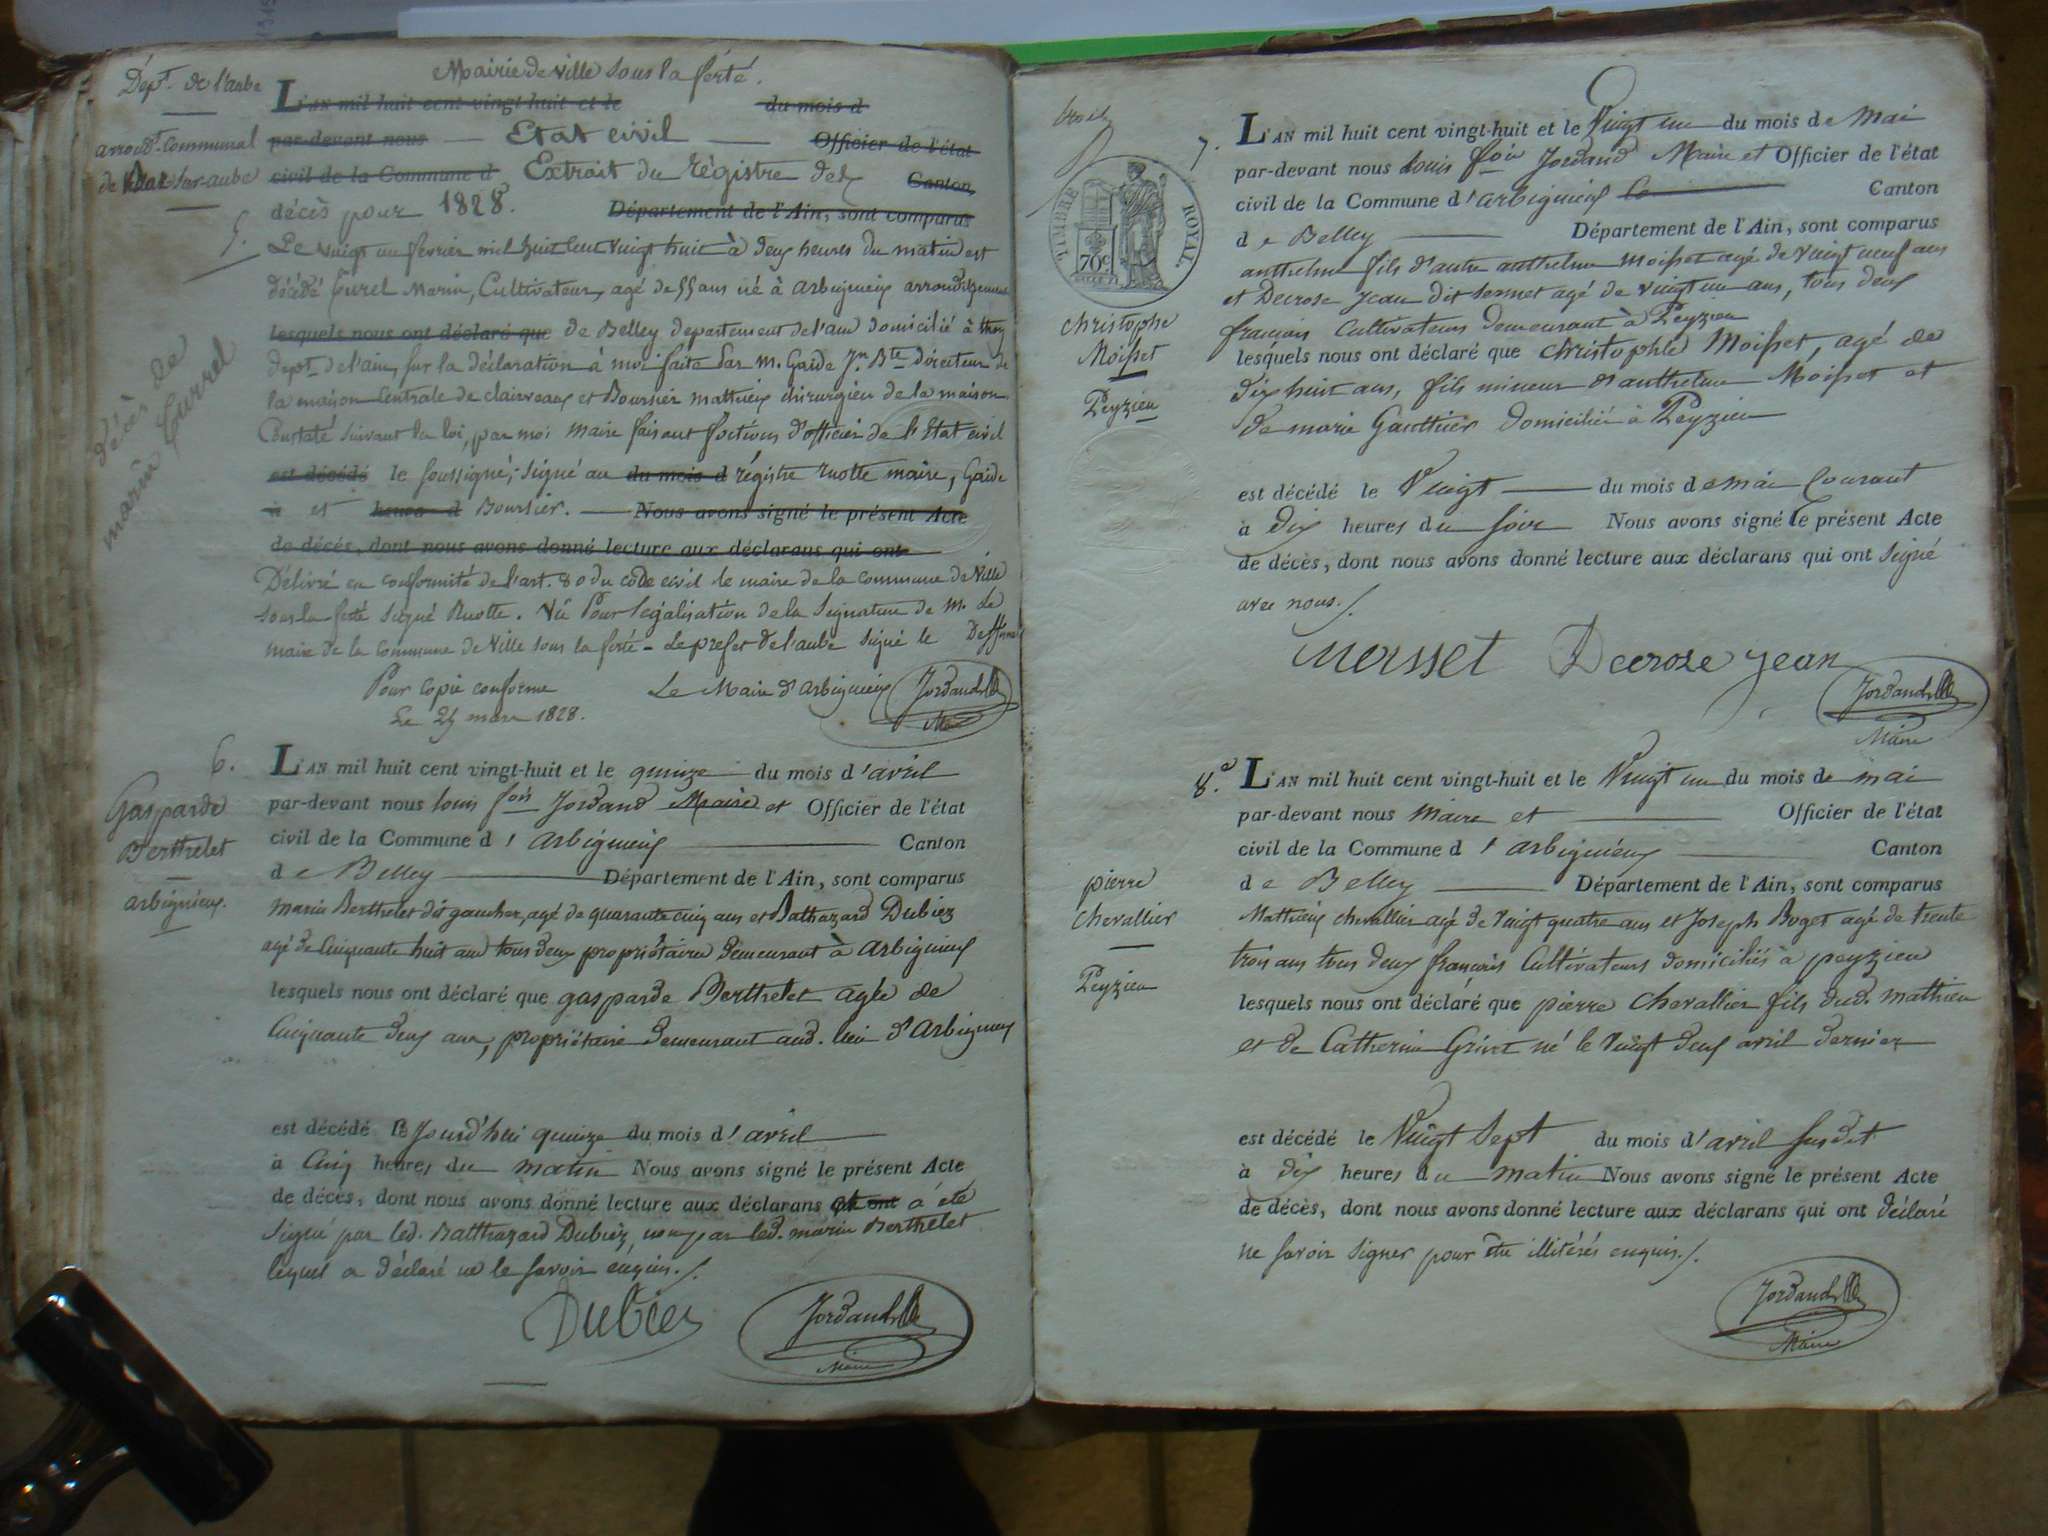 Mairie de ville sous la ferté.
Dépt. de l'aube
L'AN mil huit cent vingt-huit et le du mois d
arrondt. communal
par-devant nous Etat civil Officier de l'état
de Bar sur aube
civil de la Commune d Extrait du régistre des Canton,
décès pour 1828. Département de l'Ain, sont comparus
5.
Le vingt un fevrier mil huit cent vingt huit à deux heures du matin est
décédé Curel Marin, Cultivateur, agé de 55 ans né à arbignieux arrondissement
lesquels nous ont déclaré que de Belley departement de l'ain domicilié à
dept de l'ain, sur la déclaration à moi faite par M. Gaide Jn. Bte Directeur de
la maison Centrale de clairvaux et Boursier mathieu chirurgien de la maison.
Constaté suivant la loi, par moi maire faisant fonctions d'officier de l'Etat civil
est décédé le soussigné, signé au du mois d régistre ruotte maire, Gaide
à et heures d Boursier. Nous avons signé le présent Acte
de décès, dont nous avons donné lecture aux déclarans qui ont
décès de
marin Currel
Délivré en conformité de l'art. 80 du code civil le maire de la commune de Ville
sous la ferté signé Ruotte. Vû Pour légalisation de la signature de M. Le
maire de la commune de Ville sous la ferté - Le prefet de l'aube signé le
Pour copie conforme Le Maire d'arbignieux Jordand
Le 25 mars 1828. Maire
6.
Gasparde
Berthelet
arbignieux.
L'AN mil huit cent vingt-huit et le quinze du mois d'avril
par-devant nous louis fois Jordand Maire et Officier de l'état
civil de la Commune d'arbignieux Canton
de Belley Département de l'Ain, sont comparus
marin Berthelet dit gaucher, agé de quarante cinq ans et Balthazard Dubiez
agé de Cinquante huit ans tous deux propriétaires demeurant à arbignieux
lesquels nous ont déclaré que gasparde Berthelet agée de
Cinquante deux ans, propriétaire demeurant aud. lieu d'Arbignieux
est décédé le Jourd'hui quinze du mois d'avril
à Cinq heures du matin Nous avons signé le présent Acte
de décès, dont nous avons donné lecture aux déclarans qui ont à été
signé par led. Balthazard Dubiez, non par led. marin Berthelet
lequel a déclaré ne le savoir enquis./.
Dubiez Jordand
Maire
TIMBRE ROYAL
70c
7.
Christophe
Moisset
Peyzieu
L'AN mil huit cent vingt-huit et le Vingt un du mois de Mai
par-devant nous louis fois Jordand Maire et Officier de l'état
civil de la Commune d'arbignieux Canton
de Belley Département de l'Ain, sont comparus
anthelme fils d'autre anthelme Moisset agé de vingt neuf ans
et Decrose Jean dit sermet agé de vingt un ans, tous deux
français Cultivateurs demeurant à Peyzieu
lesquels nous ont déclaré que christophle Moisset, agé de
dix huit ans, fils mineur d'anthelme Moisset et
de marie Gaulthier domicilié à Peyzieu
est décédé le Vingt du mois de mai Courant
à dix heures du soir Nous avons signé le présent Acte
de décès, dont nous avons donné lecture aux déclarans qui ont signé
avec nous./.
Moisset Decrose jean
Jordand
Maire
8.e
pierre
chevallier
Peyzieu
L'AN mil huit cent vingt-huit et le Vingt un du mois de mai
par-devant nous maire et Officier de l'état
civil de la Commune d'arbignieux Canton
de Belley Département de l'Ain, sont comparus
Mathieu chevallier agé de vingt quatre ans et Joseph Boget agé de trente
trois ans tous deux français Cultivateurs domiciliés à peyzieu
lesquels nous ont déclaré que pierre chevallier fils dud. mathieu
et de Catherine Grivet né le vingt deux avril dernier
est décédé le Vingt sept du mois d'avril susdit
à dix heures du matin Nous avons signé le présent Acte
de décès, dont nous avons donné lecture aux déclarans qui ont déclaré
ne savoir signer pour être illitérés enquis./.
Jordand
Maire